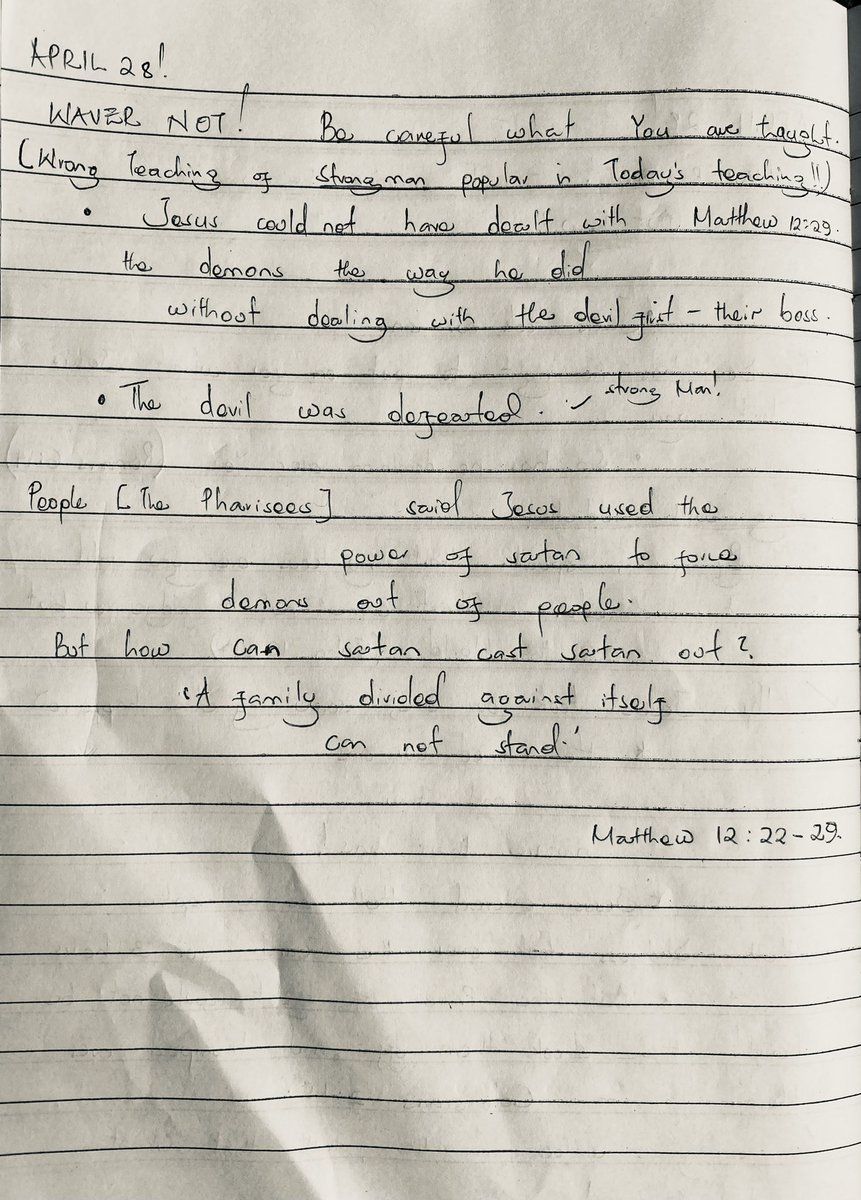 APRIL 28!
WAVER NOT! Be careful what You are taught.
(Wrong Teaching of strongman popular in Today's teaching!!)
• Jesus could not have dealt with Matthew 12:29.
the demons the way he did
without dealing with the devil first - their boss.
• The devil was defeated. ✓ strong Man!
People [The Pharisees] said Jesus used the
power of satan to force
demons out of people.
But how can satan cast satan out?
'A family divided against itself
can not stand.'
Matthew 12:22-29.